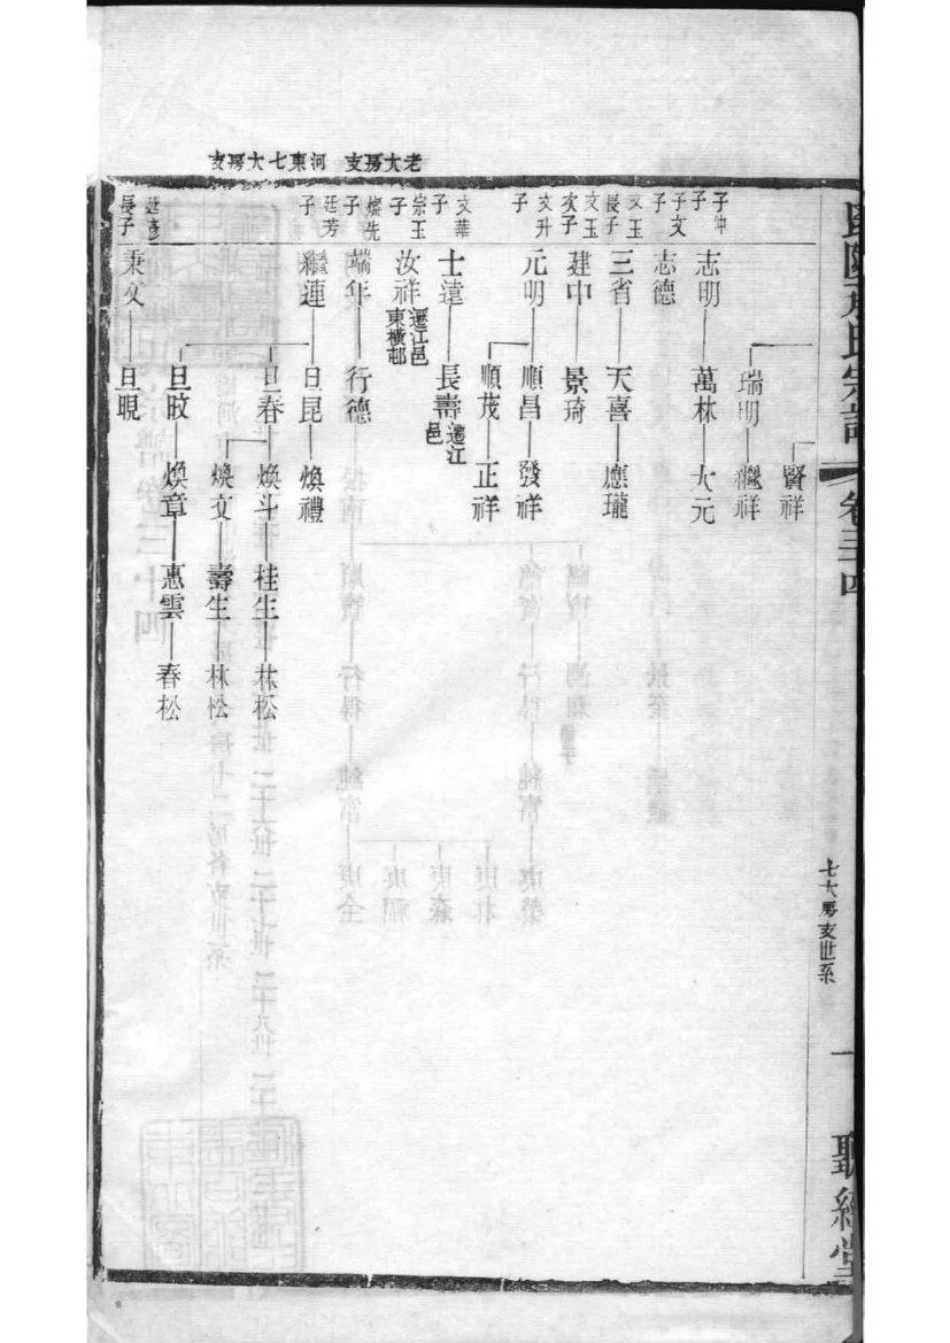 老大房支
河東七大房支
宗譜
卷三十四
七大房支世系
一
賢祥
瑞明 繼祥
子仲子
志明 萬林 大元
子文子
志德
文玉長子
三省 天喜 應瓏
文玉次子
建中 景琦
文升子
元明 順昌 發祥
順茂 正祥
文華子
士達 長壽 遷江邑
宗玉子
汝祥 遷江邑東橫邨
燦先子
端年 行德
廷芳子
繼連 旦昆 煥禮
旦春 煥斗 桂生 林松
煥文 壽生 林松
旦旼 煥章 惠雲 春松
長子
秉文 旦晛